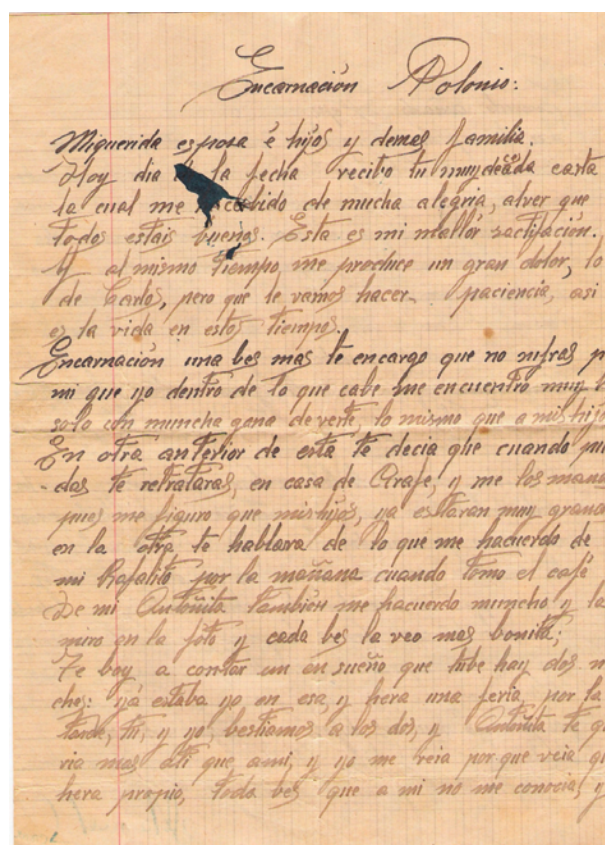 Encarnación Polonio:
Miquerida esposa é hijos y demas familia.
Hoy dia de la fecha recibo tu muy deseada carta
la cual me recibido de mucha alegria, alver que
todos estais buenos. Esta es mi mallor sactifación.
Y al mismo tiempo, me produce un gran dolor, lo
de Carlos, pero que le vamos hacer- paciencia, asi
es la vida en estos tiempos.
Encarnación una bes mas te encargo que no sufras p
mi que yo dentro de lo que cabe me encuentro muy b
solo con muncha gana de verte, lo mismo que a mis hijo
En otra anterior de esta te decia que cuando pue
-das te retrataras, en casa de Arafe, y me los mand
pues me figuro que mis hijos, ya estaran muy grand
en la otra te hablava de lo que me hacuerdo de
mi Rafalito por la mañana cuando tomo el café
De mi Antoñita tambien me hacuerdo muncho y la
miro en la foto y cada bes la veo mas bonita;
Te boy a contar un en sueño que tube hay dos n
ches: yá estaba yo en esa, y hera una feria, por la
tarde, tú, y yo, bestiamos a los dos, y Antoñita te q
ria mas áti que, ami, y yo me reia por que veia q
hera propio, toda bes que a mi no me conocia, y